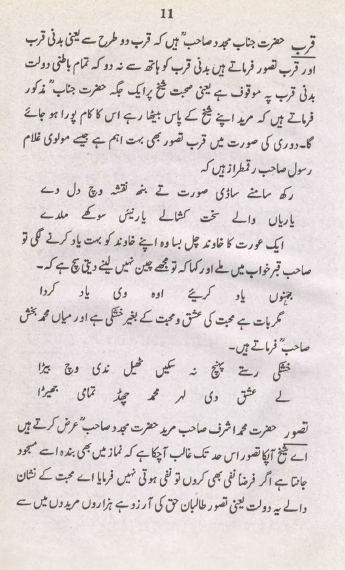 11
قرب حضرت جناب مجدد صاحبؒ ہیں کہ قرب دو طرح سے یعنی بدنی قرب
اور قرب تصور فرماتے ہیں بدنی قرب کو ہاتھ سے نہ دو کہ تمام باطنی دولت
بدنی قرب پہ موقوف ہے یعنی صحبت شیخ پر ایک جگہ حضرت جنابؒ مذکور
فرماتے ہیں کہ مرید اپنے شیخ کے پاس بیٹھا رہے اس کا کام پورا ہو جائے
گا۔ دوری کی صورت میں قرب تصور بھی بہت اہم ہے جیسے مولوی غلام
رسول صاحب رقمطراز ہیں کہ
رکھ سامنے ساڈی صورت تے بنھ نقشہ وچ دل دے
یاریاں والے سخت کشالے یارنیئں سوکھے ملدے
ایک عورت کا خاوند چل بسا وہ اپنے خاوند کو بہت یاد کرنے لگی تو
صاحب قبر خواب میں ملے اور کہا کہ تو مجھے چین نہیں لینے دیتی سچ ہے کہ۔
جہنوں یاد کریئے اوہ وی یاد کردا
مگر بات ہے محبت کی عشق و محبت کے بغیر خشکی ہے اور میاں محمد بخش
صاحبؒ فرماتے ہیں۔
خشکی رستے پہنچ نہ سکیں ٹھیل ندی وچ بیڑا
لے عشق دی لہر محمد چھڈ تمامی جھیڑا
تصور حضرت محمد اشرف صاحب مرید حضرت مجدد صاحبؒ عرض کرتے ہیں
اے شیخ آپکا تصور اس حد تک غالب آچکا ہے کہ نماز میں بھی بندہ اسے مسجود
جانتا ہے اگر فرضاً نفی بھی کروں تو نفی ہوتی نہیں فرمایا اے محبت کے نشان
والے یہ دولت یعنی تصور طالبان حق کی آرزو ہے ہزاروں مریدوں میں سے